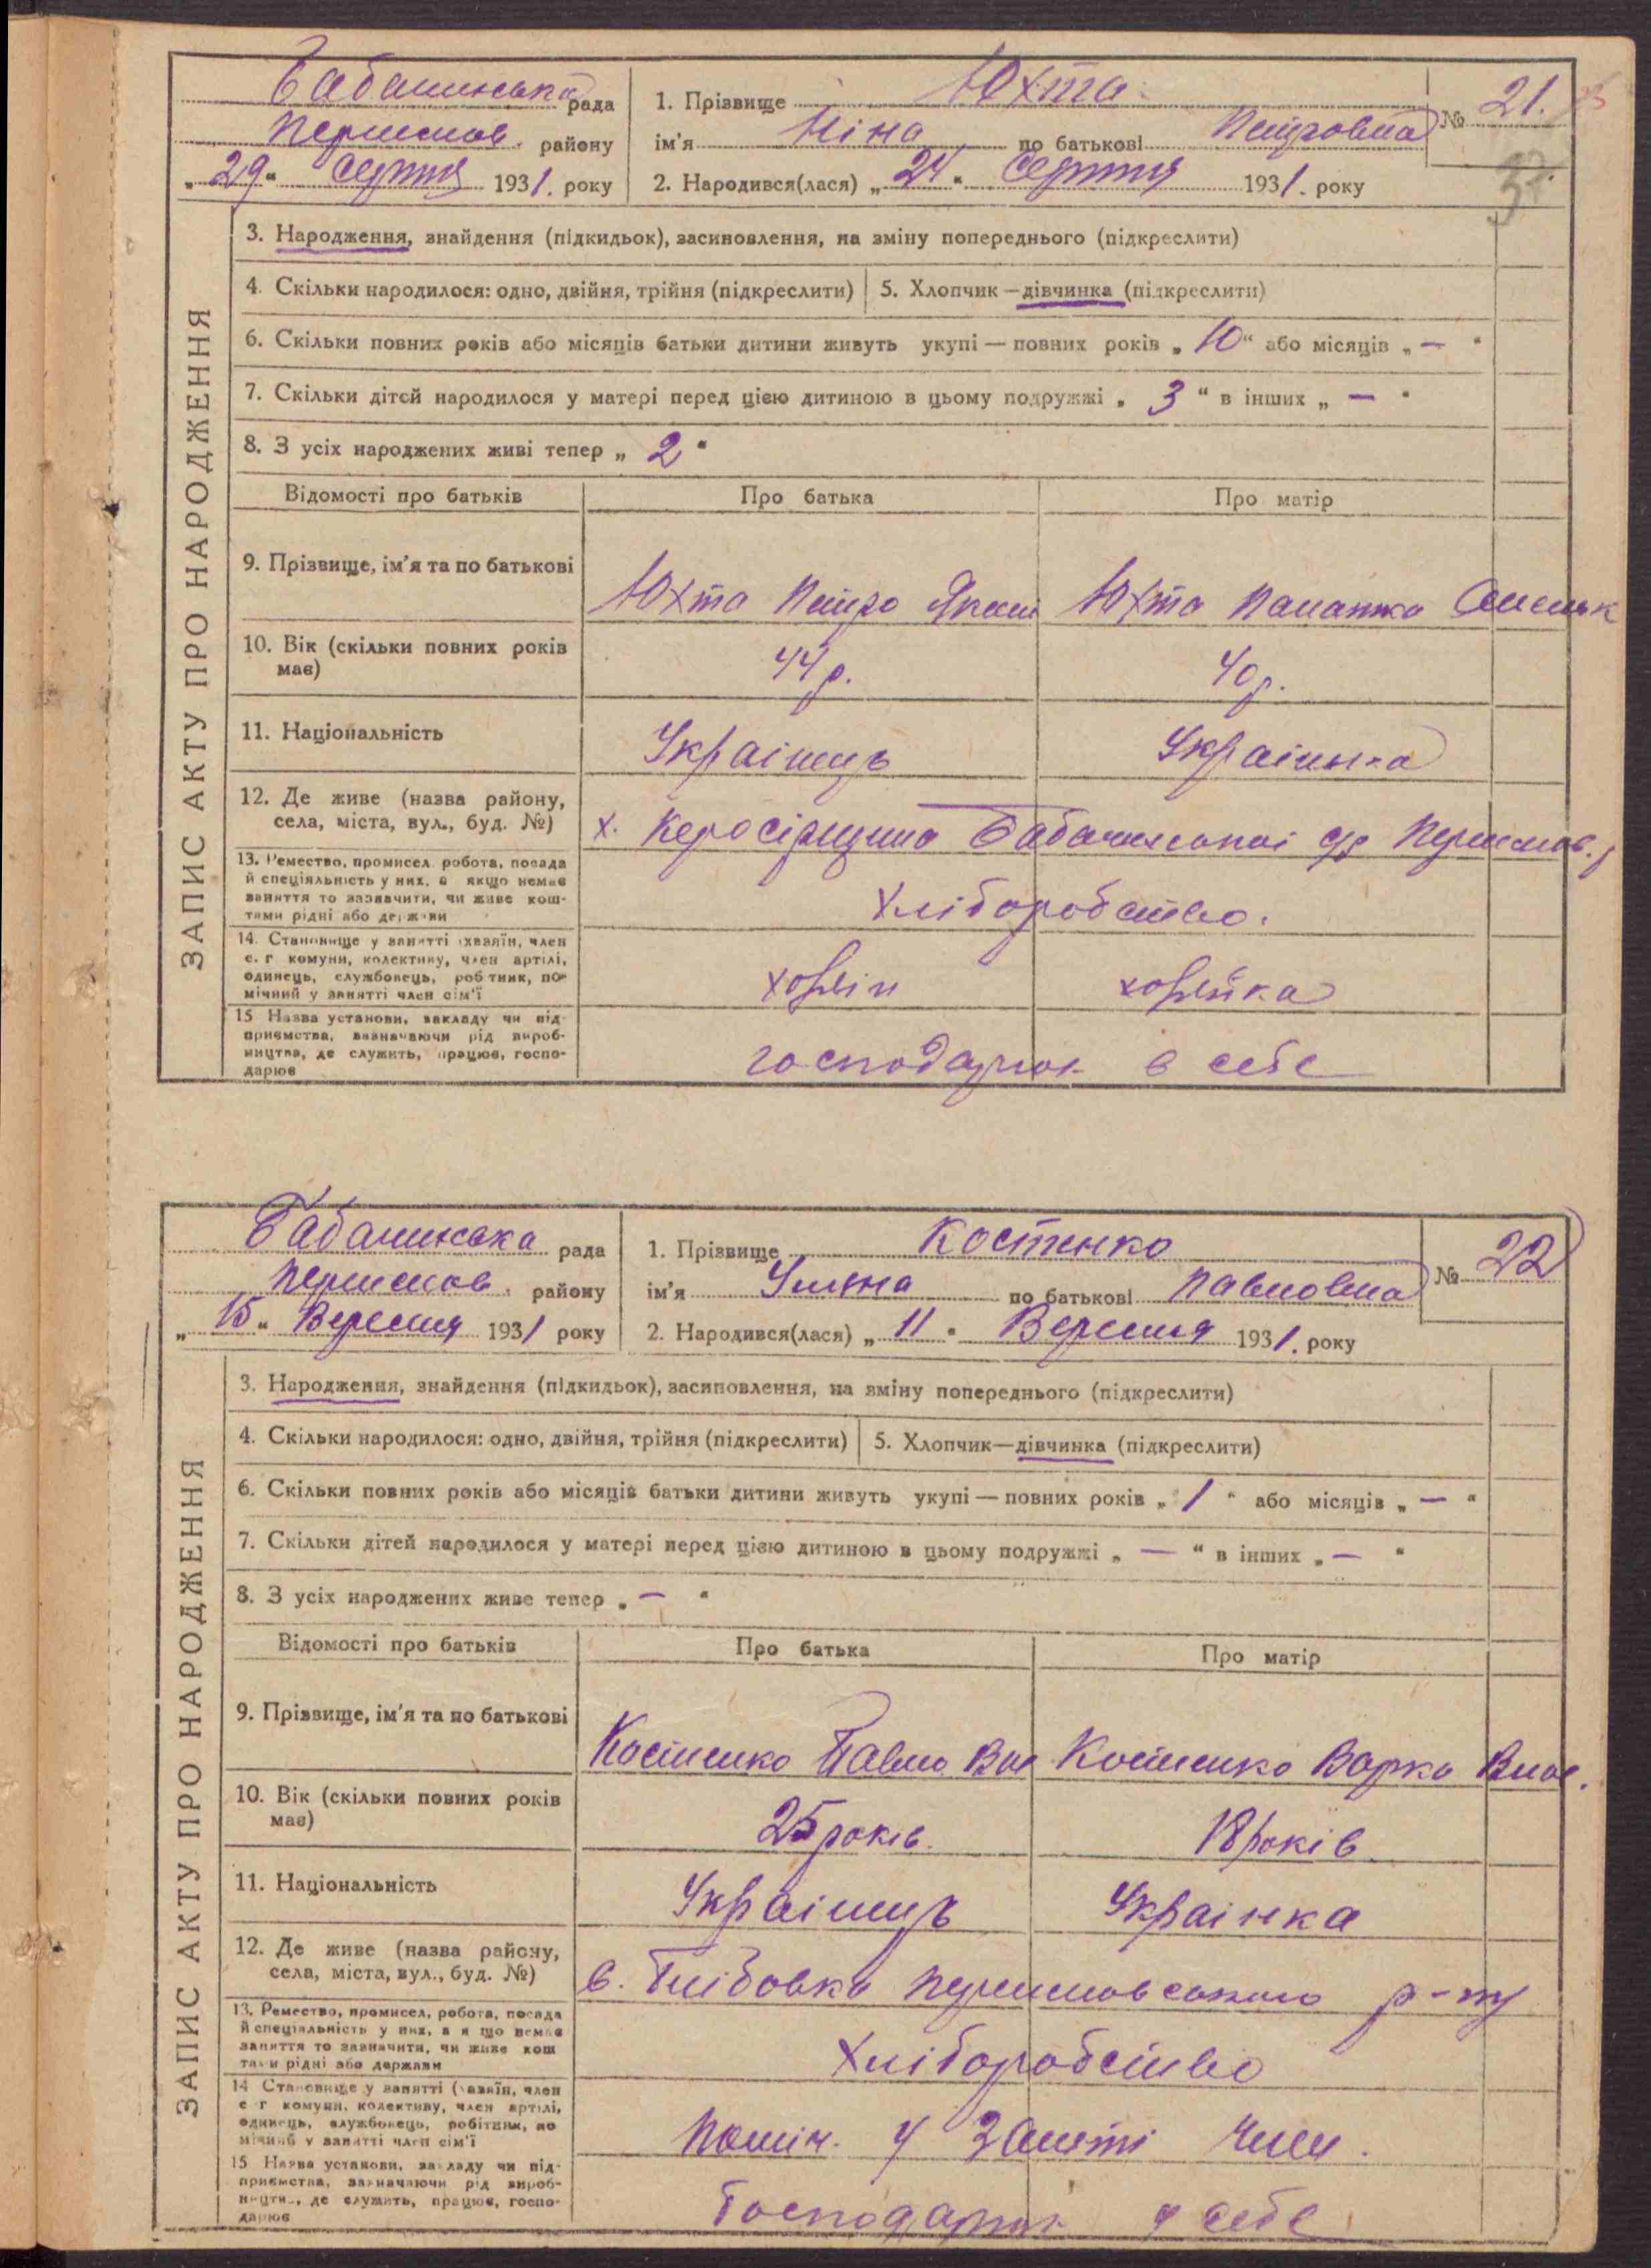 Бабачинська рада
район
1. Прізвище Юхта
№ 21.
ім'я Ніна по батькові Петровна
„29“ Серпня 1931. року
2. Народився(лася) „24“ Серпня 1931. року
37
ЗАПИС АКТУ ПРО НАРОДЖЕННЯ
3. Народження, знайдення (підкидьок), засиновлення, на зміну попереднього (підкреслити)
4. Скільки народилося: одно, двійня, трійня (підкреслити) 5. Хлопчик—дівчинка (підкреслити)
6. Скільки повних років або місяців батьки дитини живуть укупі — повних років „10“ або місяців „—“
7. Скільки дітей народилося у матері перед цією дитиною в цьому подружжі „3“ в інших „—“
8. З усіх народжених живі тепер „2“
Відомості про батьків Про батька Про матір
9. Прізвище, ім'я та по батькові
Юхта Петро Юхта
10. Вік (скільки повних років
має)
44 р. 40 р.
11. Національність
Украінець Украінка
12. Де живе (назва району,
села, міста, вул., буд. №)
х.
13. Ремество, промисел, робота, посада
й спеціяльність у них, а якщо немає
заняття то зазначити, чи живе кош-
тами рідні або держави
Хліборобство.
14. Становище у занятті (хазяїн, член
с.-г. комуни, колективу, член артілі,
одинець, службовець, робітник, по-
мічний у занятті член сім'ї
хозяін хозяйка
15 Назва установи, закладу чи під-
приємства, зазначаючи рід вироб-
ництва, де служить, працює, госпо-
дарює
господарює в себе
Бабачинська рада
району
1. Прізвище Костенко
№ 22
ім'я Уляна по батькові Павловна
„15“ Вересня 1931 року
2. Народився(лася) „11“ Вересня 1931. року
ЗАПИС АКТУ ПРО НАРОДЖЕННЯ
3. Народження, знайдення (підкидьок), засиновлення, на зміну попереднього (підкреслити)
4. Скільки народилося: одно, двійня, трійня (підкреслити) 5. Хлопчик—дівчинка (підкреслити)
6. Скільки повних років або місяців батьки дитини живуть укупі — повних років „1“ або місяців „—“
7. Скільки дітей народилося у матері перед цією дитиною в цьому подружжі „—“ в інших „—“
8. З усіх народжених живе тепер „—“
Відомості про батьків Про батька Про матір
9. Прізвище, ім'я та по батькові
Костенко Павло Костенко Варка
10. Вік (скільки повних років
має)
25 років. 18 років
11. Національність
Украінець Украінка
12. Де живе (назва району,
села, міста, вул., буд. №)
р-ну
13. Ремество, промисел, робота, посада
й спеціяльність у них, а якщо немає
заняття то зазначити, чи живе кош
тами рідні або держави
Хліборобство
14 Становище у занятті (хазяїн, член
с г комуни, колективу, член артілі,
одинець, службовець, робітник, по
мічний у занятті член сім'ї
поміч. у Заняті член.
15 Назва установи, закладу чи під-
приємства, зазначаючи рід вироб-
ництва, де служить, працює, госпо-
дарює
Господарює у себе